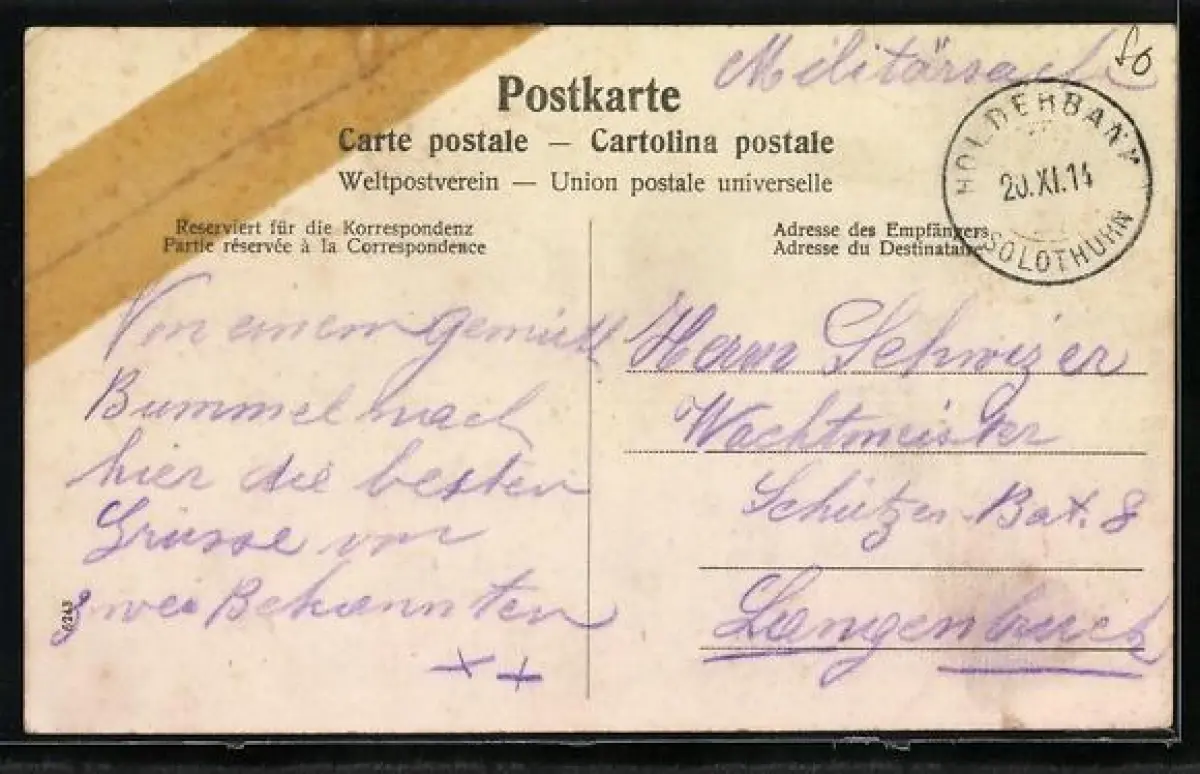 Militärsache
80
Postkarte
Carte postale — Cartolina postale
Weltpostverein — Union postale universelle
HOLDERBANK
20.XI.14
SOLOTHURN
Reserviert für die Korrespondenz
Partie réservée à la Correspondence
Adresse des Empfängers
Adresse du Destinataire
Von einem gemütl
Bummel nach
hier die besten
Grüsse von
zwei Bekannten
++
Herrn Schwizer
Wachtmeister
Schützen-Bat. 8
Langenbruck
6243